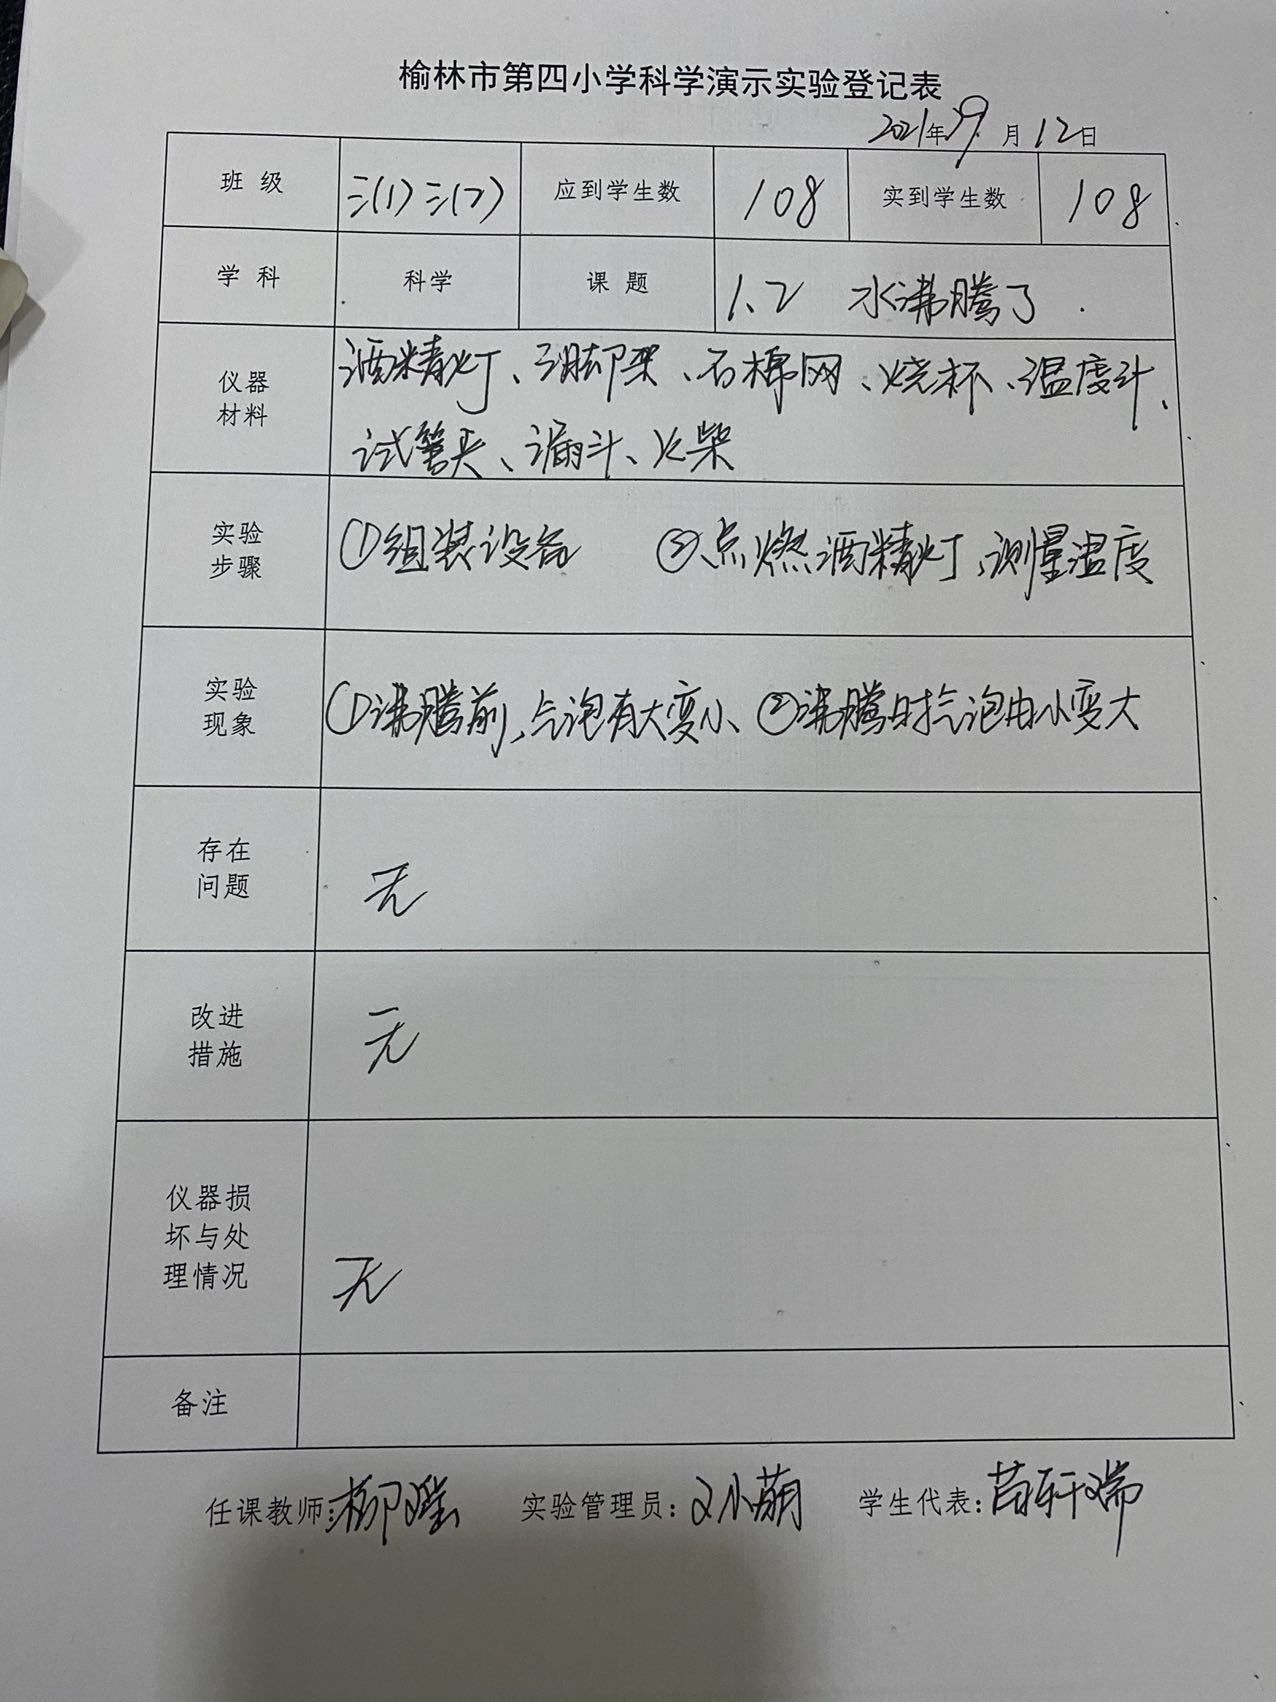 榆林市第四小学科学演示实验登记表
2021年9月12日
班级 三(1) 三(2) 应到学生数 108 实到学生数 108
学科 科学 课题 1.2 水沸腾了
仪器材料 酒精灯、三脚架、石棉网、烧杯、温度计、
试管夹、漏斗、火柴
实验步骤 ①组装设备 ②点燃酒精灯,测量温度
实验现象 ①沸腾前,气泡有大变小、②沸腾时气泡由小变大
存在问题 无
改进措施 无
仪器损坏与处理情况 无
备注
任课教师:柳 实验管理员:小萌 学生代表:苗轩瑞